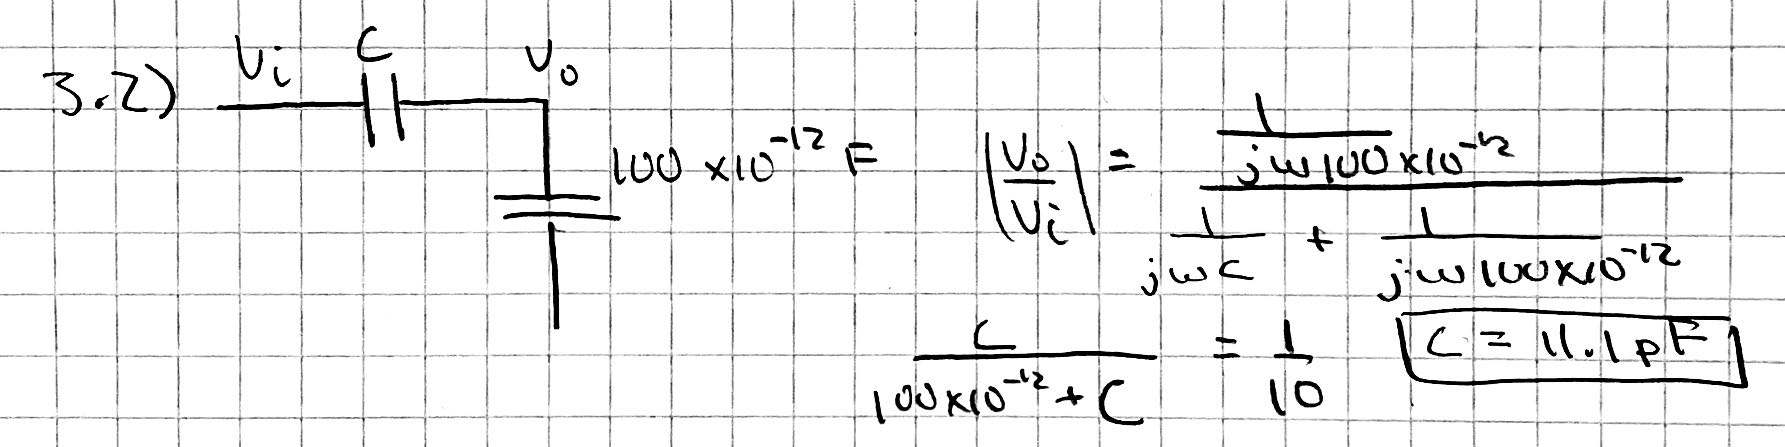 3.2) Vi C Vo
100 x10^-12 F
|Vo/Vi| = (1/(jω100x10^-12)) / (1/(jωC) + 1/(jω100x10^-12))
C/(100x10^-12 + C) = 1/10 C = 11.1 pF